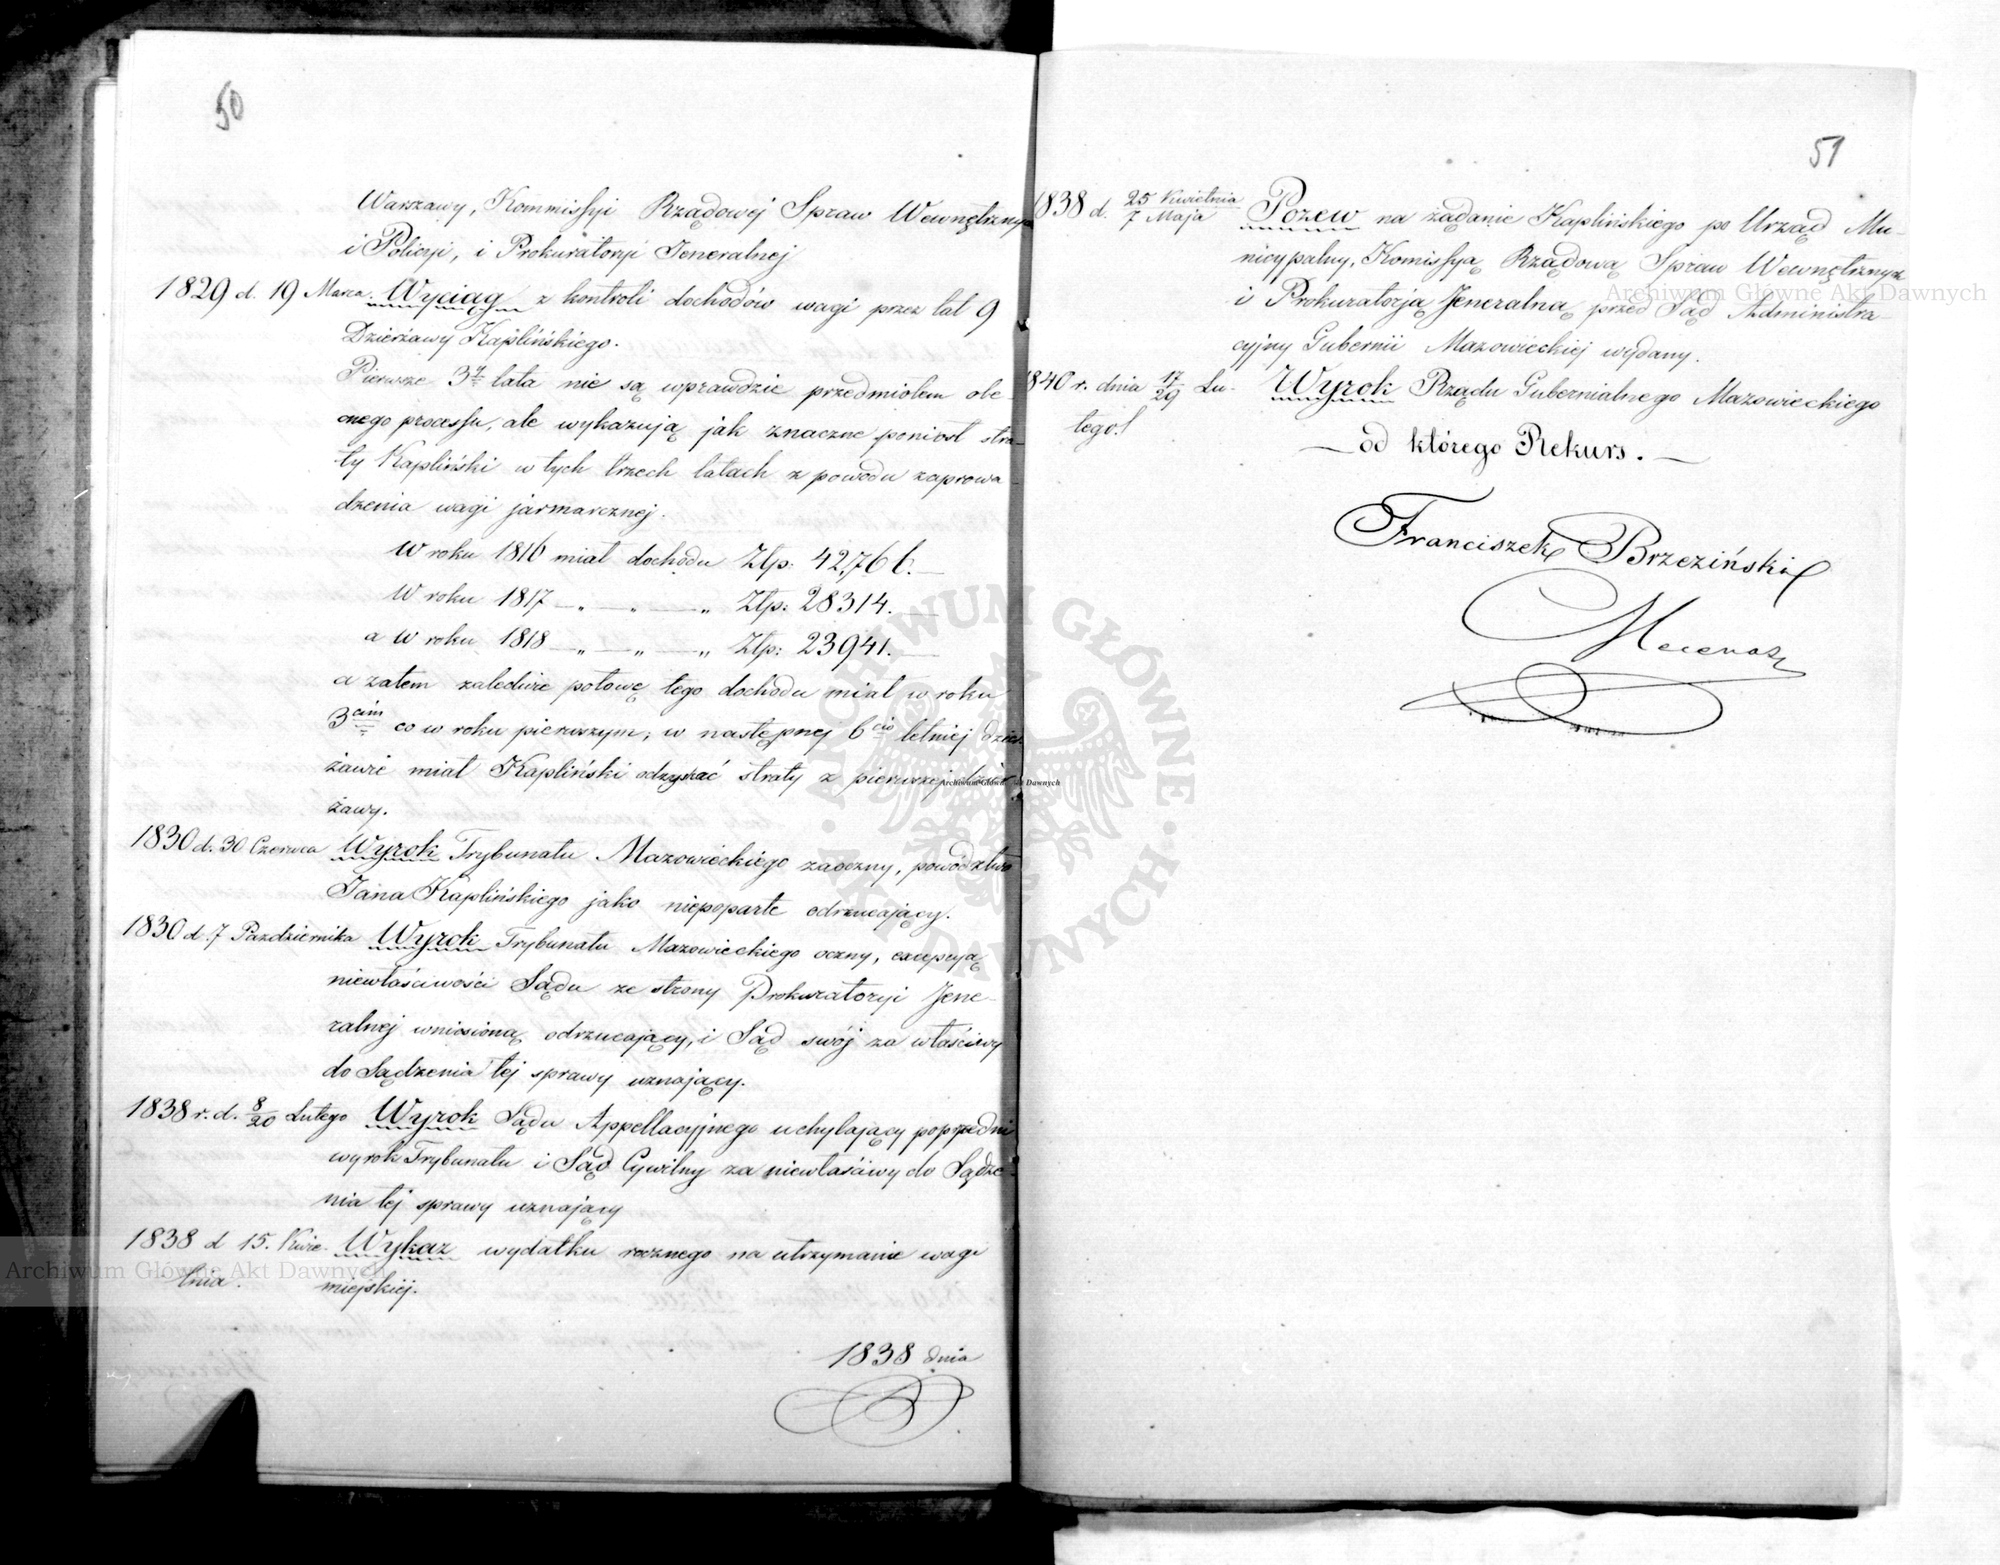 50
Warszawy, Kommissyi Rządowej Spraw Wewnętrznych
i Policyi, i Prokuratoryi Jeneralnej
1829 d. 19 Marca. Wyciąg z kontroli dochodów wagi przez lat 9
Dzierżawy Kaplińskiego.
Pierwsze 3y lata nie są wprawdzie przedmiotem obe-
cnego processu, ale wykazują jak znaczne poniosł stra-
ty Kapliński w tych trzech latach z powodu zaprowa-
dzenia wagi jarmarcznej.
W roku 1816 miał dochodu Złp: 42,766.—
W roku 1817 — „ — „ Złp: 28314.—
a w roku 1818 — „ — „ — „ Złp: 23941.—
a zatem zaledwie połowę tego dochodu miał w roku
3cim co w roku pierwszym; w następnej 6cio letniej dzier-
żawie miał Kapliński odzyskać straty z pierwszej dzier-
żawy.
1830 d. 30 Czerwca Wyrok Trybunału Mazowieckiego zaoczny, powództwo
Jana Kaplińskiego jako niepoparte odrzucający.
1830 d. 7 Października Wyrok Trybunału Mazowieckiego oczny, excepcyą
niewłaściwości Sądu ze strony Prokuratoryi Jene-
ralnej wniesioną odrzucający, i Sąd swój za właściwy
do Sądzenia tej sprawy uznający.
1838 r. d. 8/20 Lutego Wyrok Sądu Appellacyjnego uchylający poprzedni
wyrok Trybunału i Sąd Cywilny za niewłaściwy do Sądze-
nia tej sprawy uznający
1838 d 15. Kwie- Wykaz wydatku rocznego na utrzymanie wagi
tnia. miejskiej.
1838 dnia
51
1838 d. 25 Kwietnia/7 Maja Pozew na żądanie Kaplińskiego po Urząd Mu-
nicypalny, Komissyą Rządową Spraw Wewnętrznych
i Prokuratorją Jeneralną przed Sąd Administra-
cyjny Gubernii Mazowieckiej wydany.
1840 r. dnia 17/29 Lu- Wyrok Rządu Gubernialnego Mazowieckiego
tego.
— od którego Rekurs. —
Franciszek Brzeziński
Mecenas
Archiwum Główne Akt Dawnych
Archiwum Główne Akt Dawnych
Archiwum Główne Akt Dawnych
· ARCHIWUM GŁÓWNE · AKT DAWNYCH